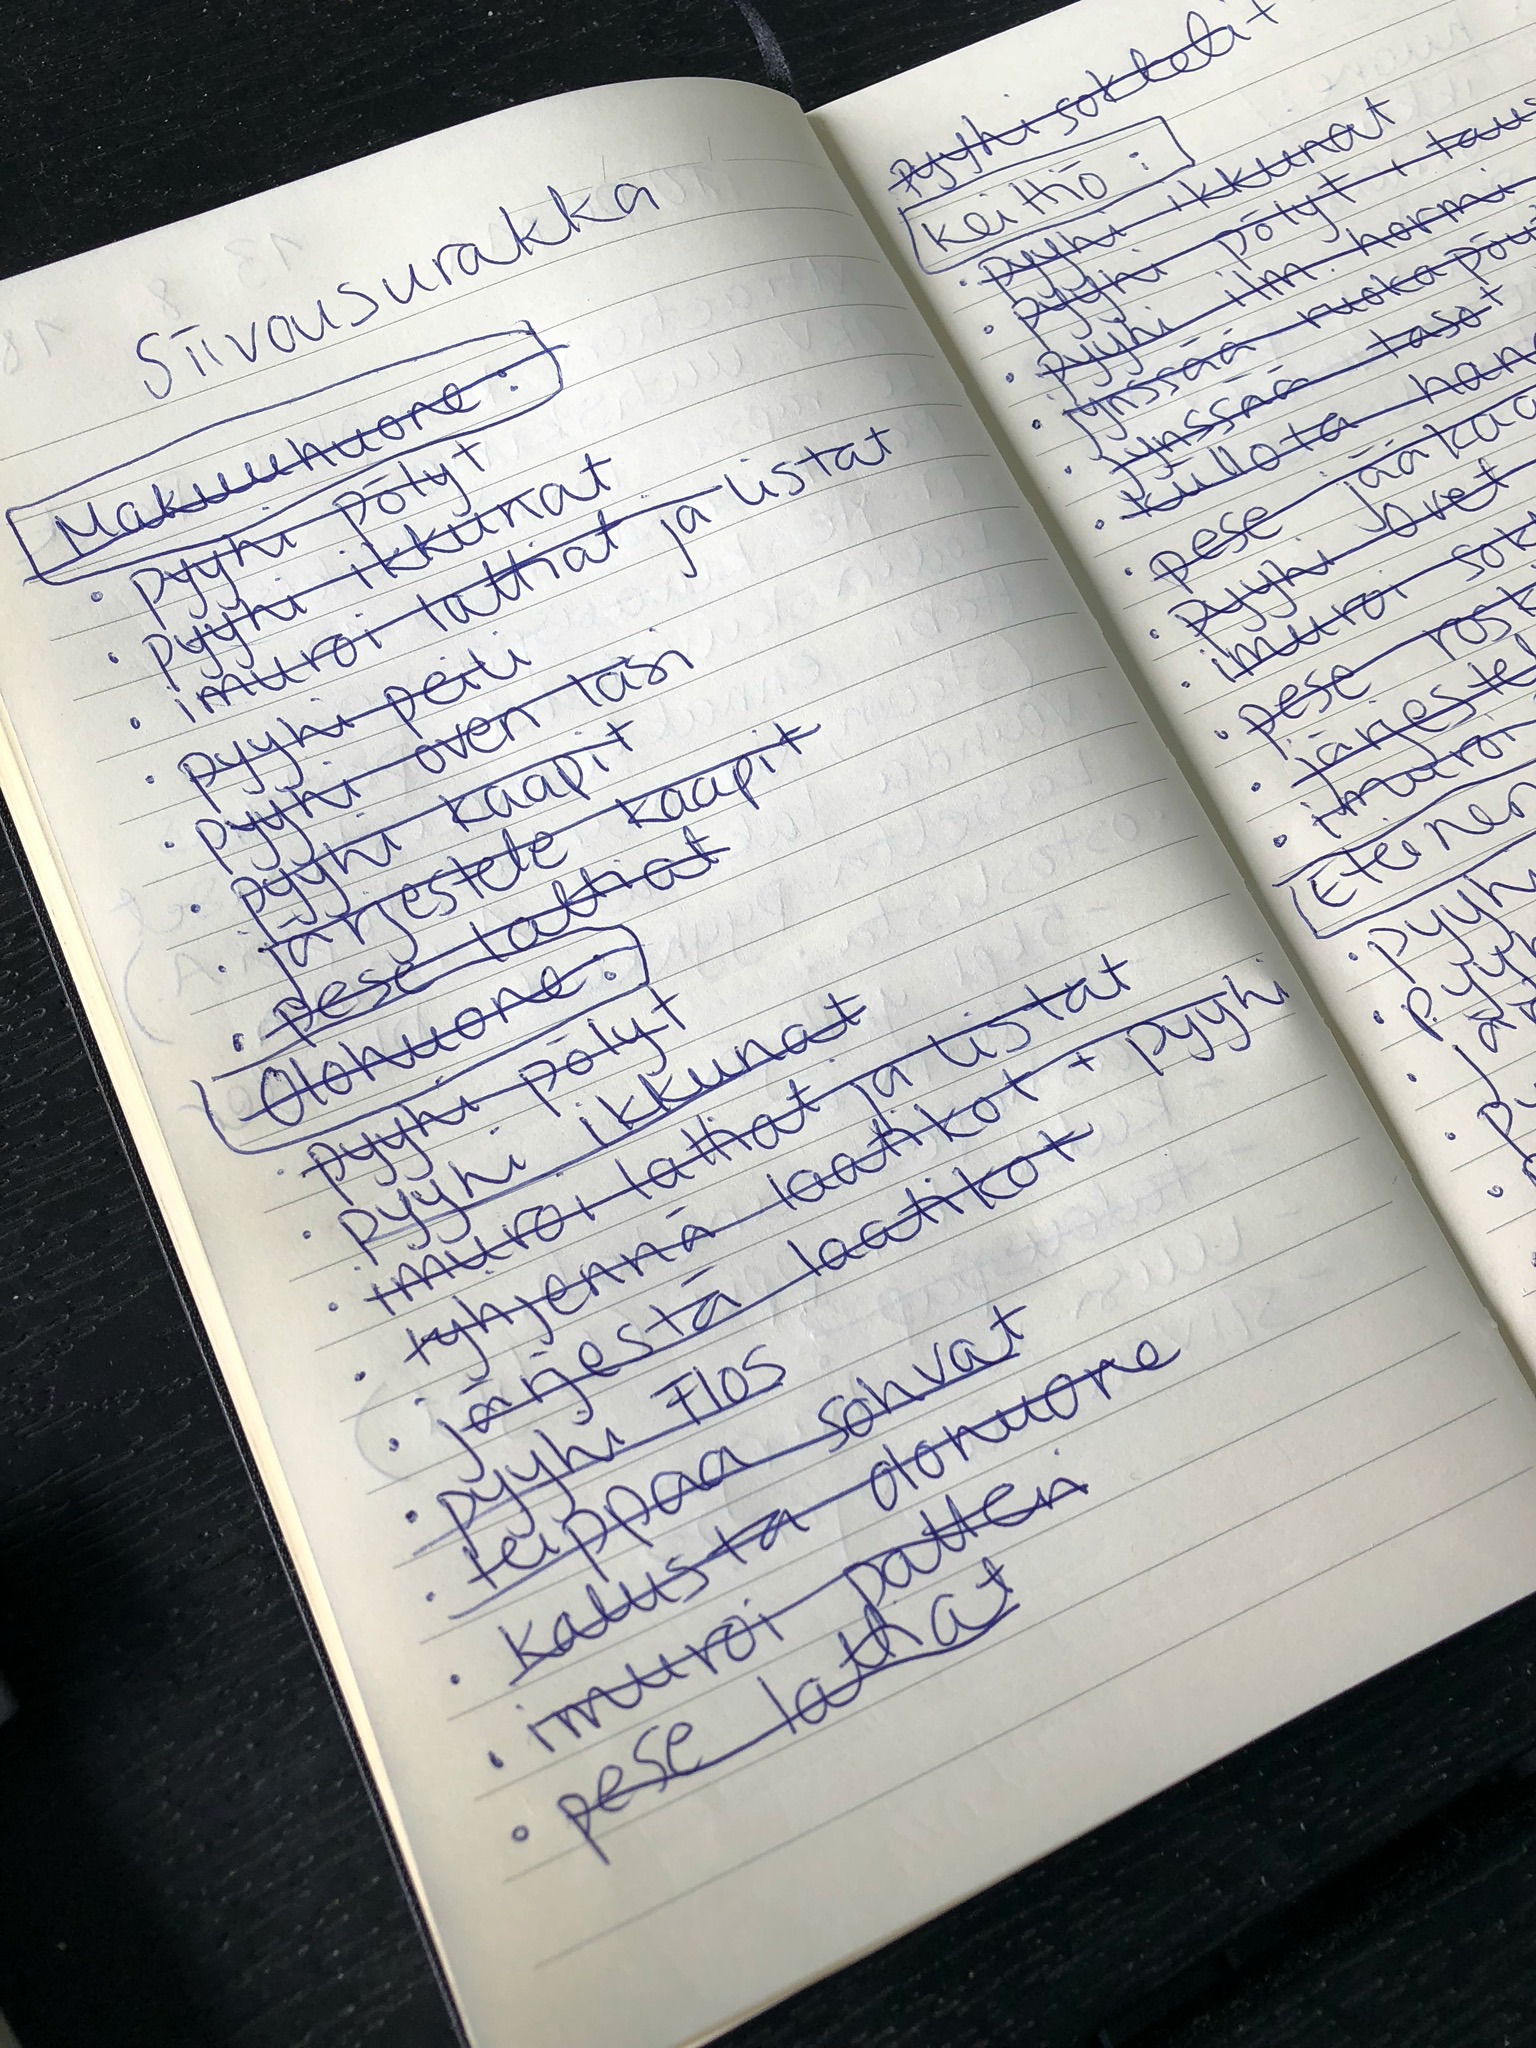 Siivousurakka
Makuuhuone:
• pyyhi pölyt
• pyyhi ikkunat
• imuroi lattiat ja listat
• pyyhi peili
• pyyhi oven lasi
• pyyhi kaapit
• järjestele kaapit
• pese lattiat
Olohuone:
• pyyhi pölyt
• pyyhi ikkunat
• imuroi lattiat ja listat
• tyhjennä laatikot + pyyhi
• järjestä laatikot
• pyyhi Flos
• teippaa sohvat
• kalusta olohuone
• imuroi patteri
• pese lattiat
pyyhi sokkelit
Keittiö:
• pyyhi ikkunat
• pyyhi pölyt,
• pyyhi ilm. hormi
• jynssää
• jynssää tasot
• kiillota
• pese
• pyyhi ovet
• imuroi
• pese
•
• imuroi
Eteinen
• pyyhi